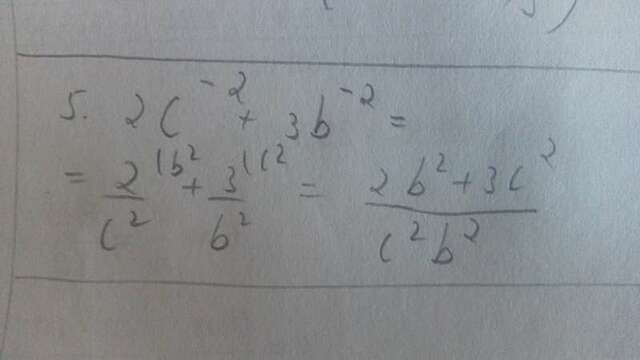 5. 2c⁻² + 3b⁻² =
= 2/c² (b² + 3/b² (c² = (2b² + 3c²)/(c²b²)